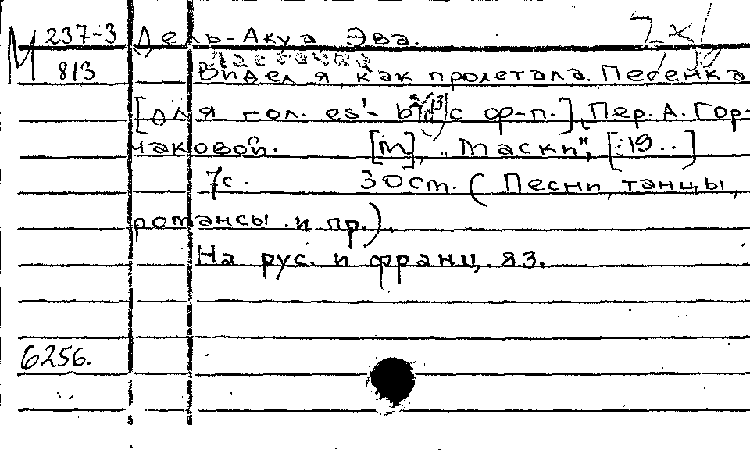 М 237-3 Дель-Акуа Эва.
Ласточка
813 Видел я, как пролетала. Песенка
[для гол. es'- b² с ф-п.], Пер. А. Гор-
чаковой. [М], "Маски", [19..]
7с. 30 см. (Песни, танцы,
романсы и пр.).
На рус. и франц. яз.
6256.